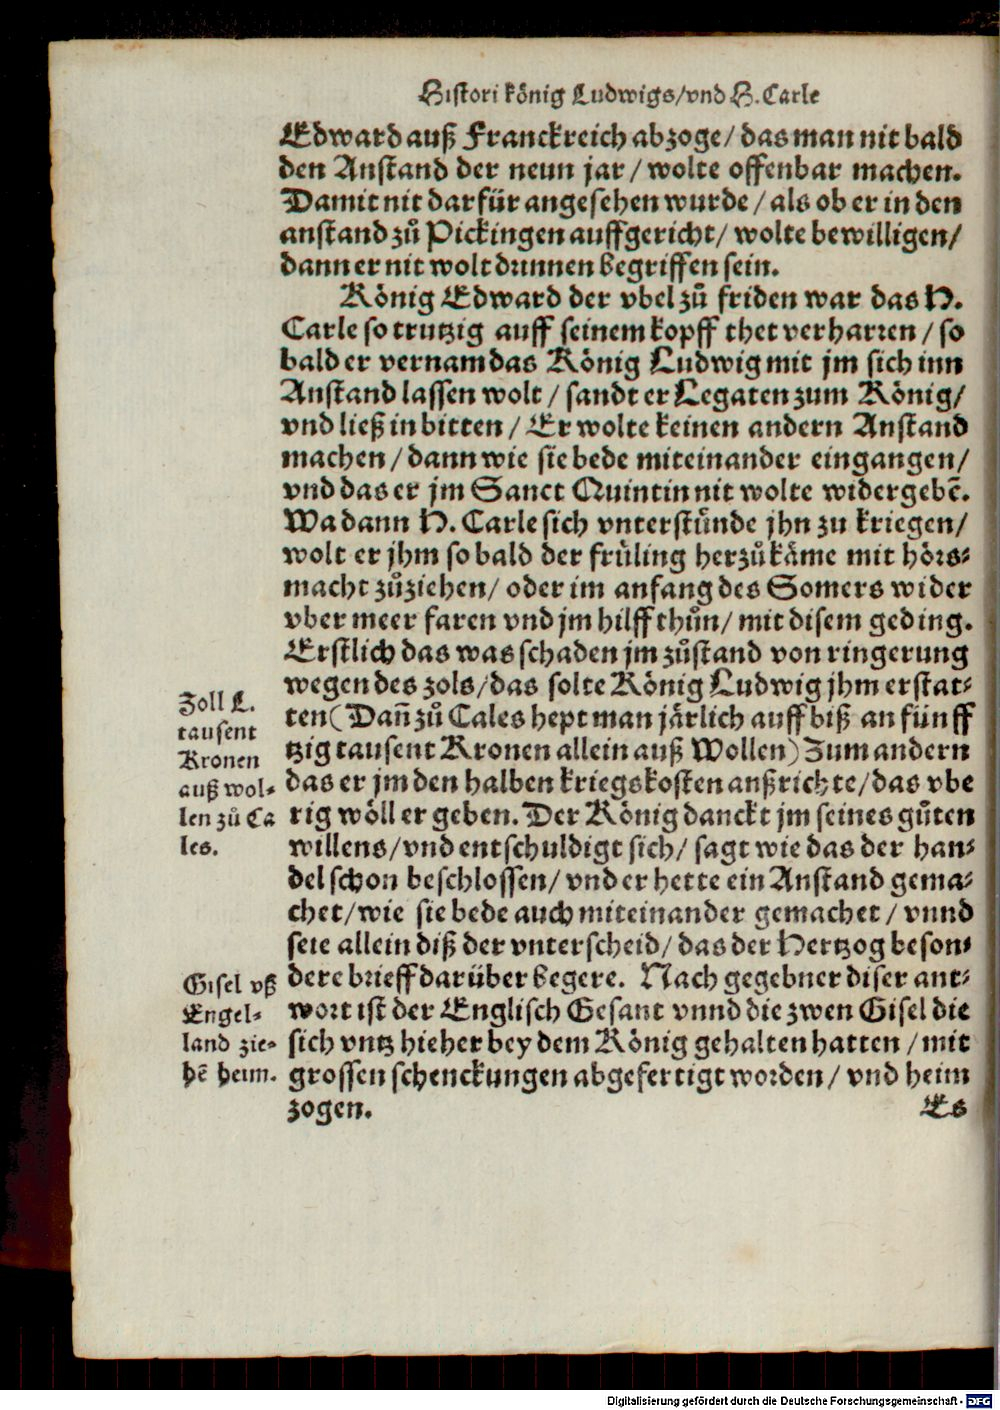 Histori kőnig Ludwigs/vnd H. Carle
Edward auß Franckreich abzoge/ das man nit bald
den Anstand der neun jar/ wolte offenbar machen.
Damit nit darfür angesehen wurde/ als ob er in den
anstand zů Pickingen auffgericht/ wolte bewilligen/
dann er nit wolt drinnen begriffen sein.
Kőnig Edward der vbel zů friden war das H.
Carle so trutzig auff seinem kopff thet verharren/ so
bald er vernam das Kőnig Ludwig mit jm sich inn
Anstand lassen wolt/ sandt er Legaten zum Kőnig/
vnd ließ in bitten/ Er wolte keinen andern Anstand
machen/ dann wie sie bede miteinander eingangen/
vnd das er jm Sanct Quintin nit wolte widergebẽ.
Wa dann H. Carle sich vnterstünde jhn zu kriegen/
wolt er jhm so bald der früling herzů käme mit hőrs⸗
macht zůziehen/ oder im anfang des Somers wider
vber meer faren vnd jm hilff thůn/ mit disem geding.
Erstlich das was schaden jm zůstand von ringerung
wegen des zols/das solte Kőnig Ludwig jhm erstat⸗
ten(Dañ zů Cales hept man järlich auff biß an fünff
tzig tausent Kronen allein auß Wollen) Zum andern
das er jm den halben kriegskosten außrichte/das vbe
rig wőll er geben. Der Kőnig danckt jm seines gůten
willens/vnd entschuldigt sich/ sagt wie das der han⸗
del schon beschlossen/ vnd er hette ein Anstand gema⸗
chet/wie sie bede auch miteinander gemachet/ vnnd
seie allein diß der vnterscheid/ das der Hertzog beson⸗
dere brieff darüber begere. Nach gegebner diser ant⸗
wort ist der Englisch Gesant vnnd die zwen Gisel die
sich vntz hieher bey dem Kőnig gehalten hatten/ mit
grossen schenckungen abgefertigt worden/ vnd heim
zogen.
Es
Zoll L.
tausent
Kronen
auß wol⸗
len zů Ca
les.
Gisel vß
Engel⸗
land zie⸗
hẽ heim.
Digitalisierung gefördert durch die Deutsche Forschungsgemeinschaft - DFG